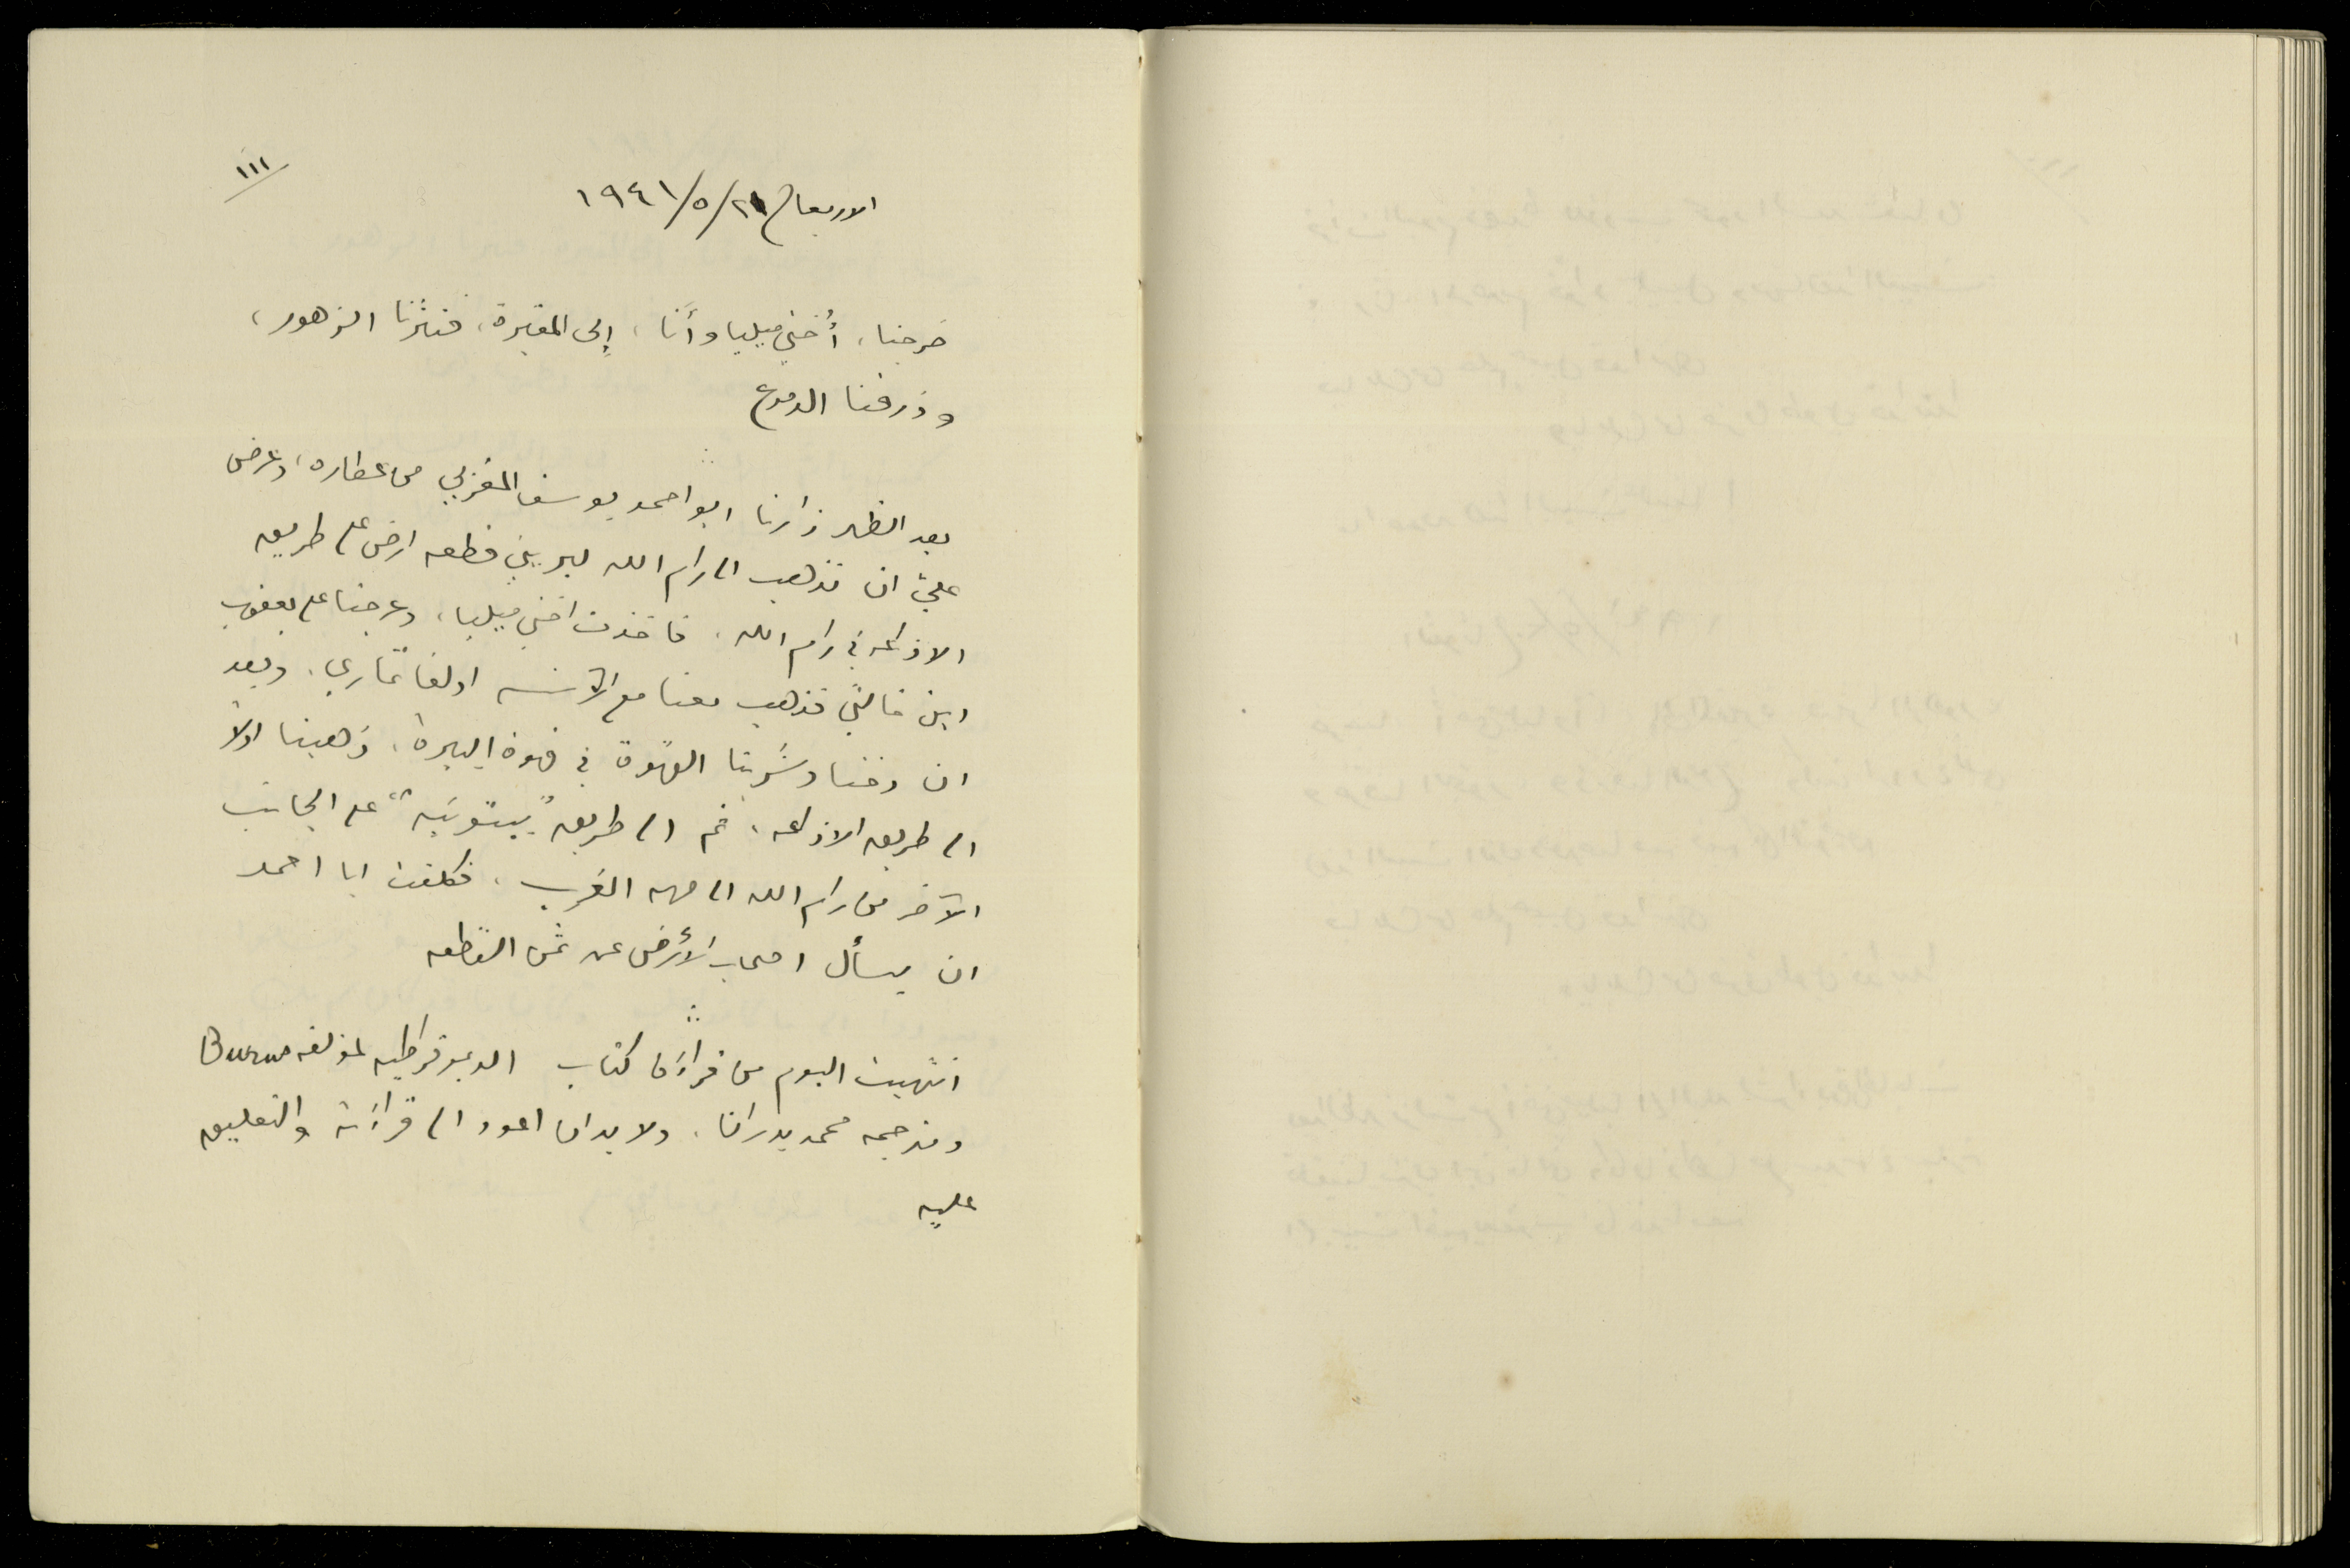 ١١١
الاربعاء ٢١/٥/١٩٤١
خرجنا، أختي ميليا وأنا، إلى المقبرة، فنثرنا الزهور،
وذرفنا الدموع
بعد الظهر زارنا ابو احمد يوسف المغربي من عطاره، وعرض
عليّ ان نذهب الى رام الله ليريني قطعه ارض على طريق
الاذاعه في رام الله. فاخذت اختي ميليا، وعرجنا على يعقوب
ابن خالتي فذهب معنا مع الآنسه اولغا تماري. وبعد
ان وقفنا وشربنا القهوة في قهوة البيرة، ذهبنا اولاً
الى طريق الاذاعه، ثم الى طريق "بيتونيه" على الجانب
الآخر من رام الله الى جهه الغرب. فكلفت ابا احمد
ان يسأل اصحاب الأرض عن ثمن القطعه
∴
انتهيت اليوم من قراءة كتاب الديموقراطيه لمؤلفه Burns
ومترجمه محمد بدران. ولا بد ان اعود الى قراءته والتعليق
عليه